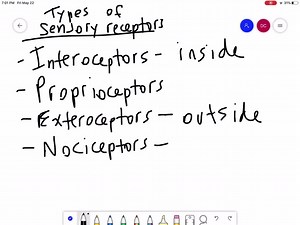 7:01 PM Fri May 22
31%
Types of
Sensory receptors
- Interoceptors - inside
- Proprioceptors
- Exteroceptors - outside
- Nociceptors -